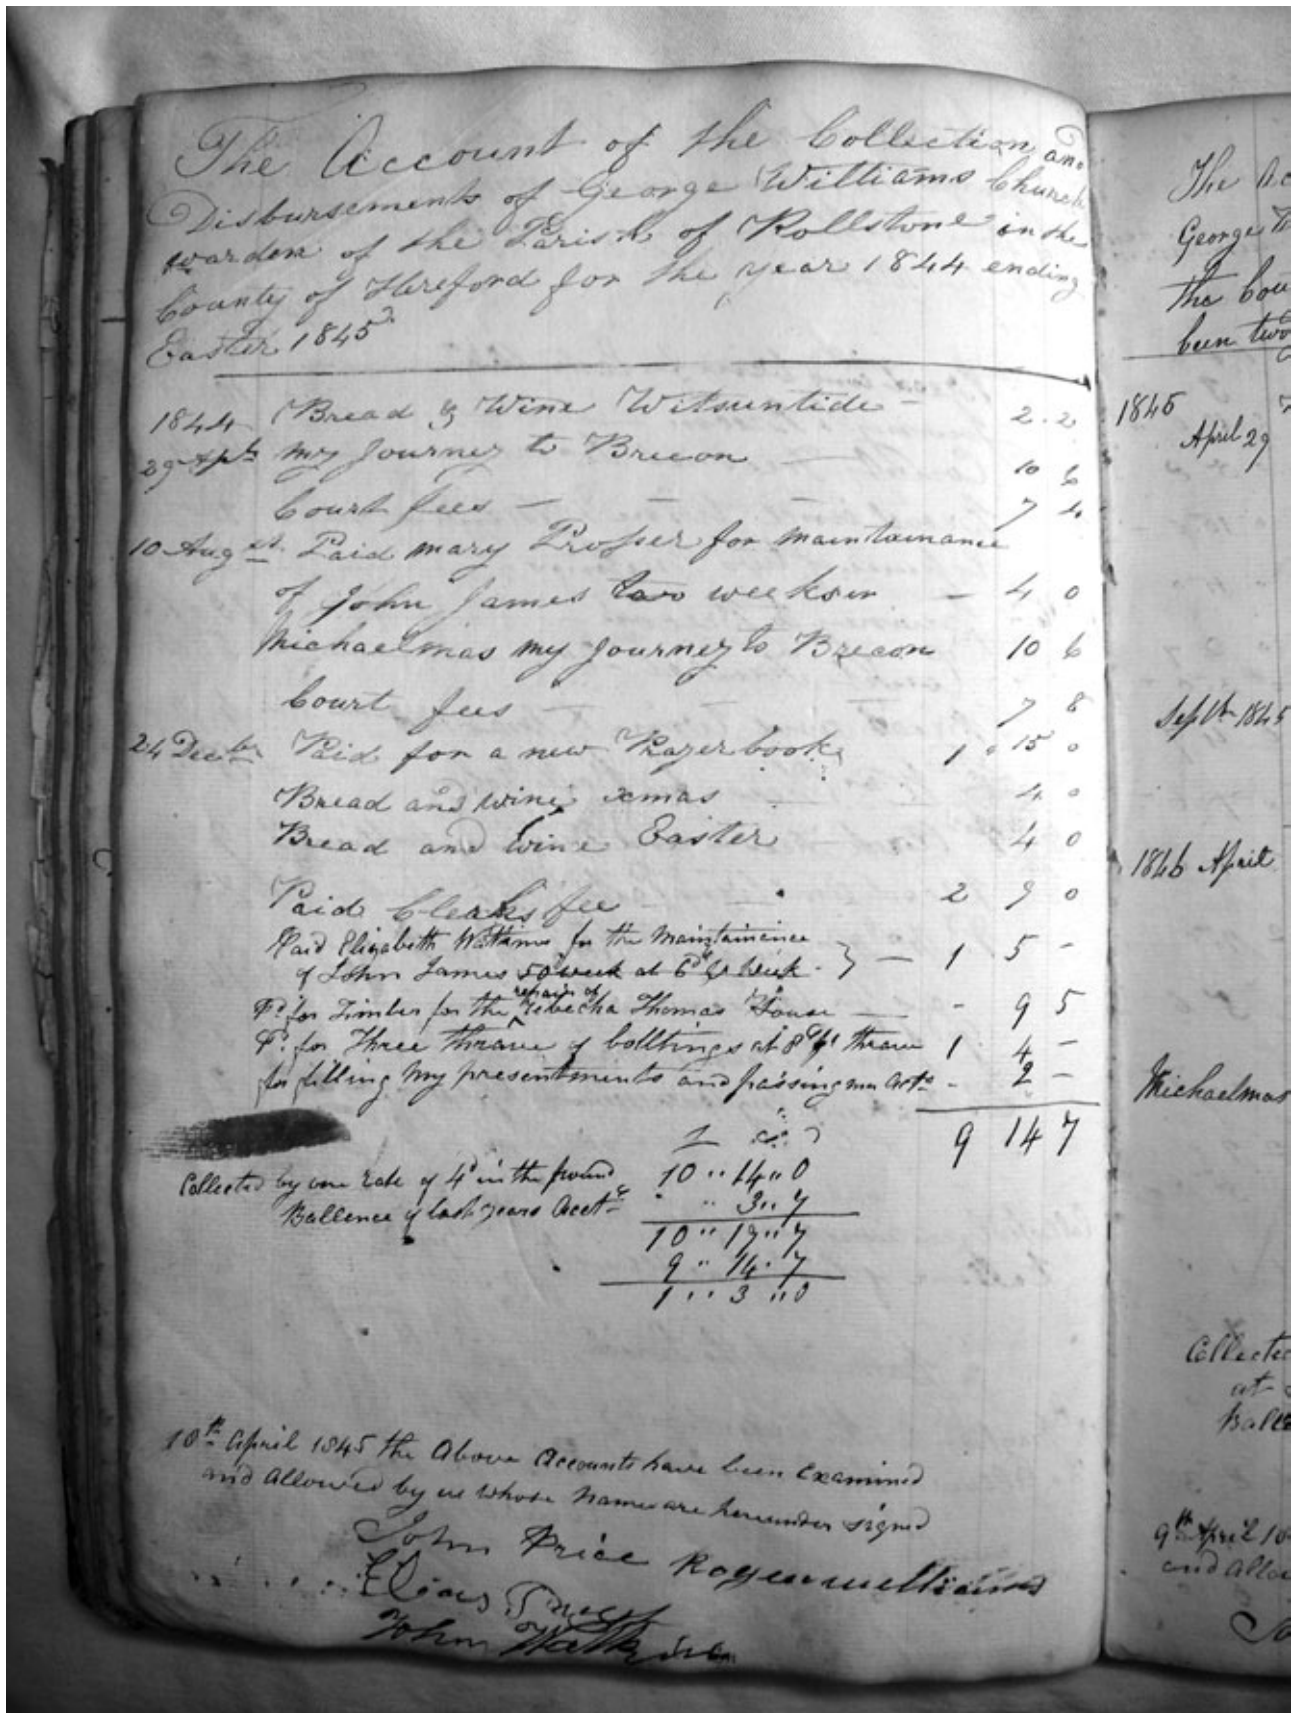 The Account of the Collection and
Disbursements of George Williams Church
warden of the Parish of Rollstone in the
County of Hereford for the year 1844 ending
Easter 1845
1844 Bread & Wine Witsuntide - 2 . 2
29 Apl my Journey to Brecon 10 6
Court fees - - - 7 4
10 Augst Paid mary Prosser for maintainance
of John James two weeks - 4 0
Michaelmas my Journey to Brecon 10 6
Court fees - - - 7 8
24 Decbr Paid for a new Prayer book 1 " 15 0
Bread and wine xmas 4 0
Bread and wine Easter 4 0
Paid Clerks fee 2 9 0
Paid Elizabeth Watkins for the Maintainince
of John James 50 week at 6d Pr Week } - 1 5 -
repairs of
Pd for Timber for the Rebecha Thomas House - - 9 5
Pd for Three thrave of bolltings at 8s Pr thrave 1 4 -
for filling my presentments and passing my Acts - 2 -
9 14 7
Collected by one rate of 4d in the pound 10 " 14 " 0
Ballence of last years Acct " 3 " 7
10 " 17 " 7
9 " 14 " 7
1 " 3 " 0
10th April 1845 the Above Accounts have been Examined
and Allowed by us whose Names are hereunder signed
John Price Roger williams
John Watkins
The Ac
George
the Cou
been two
1845
April 29
Septbr 1845
1846 April
Michaelmas
Collected
at
Balle
9th April 18
and Allow
Jo